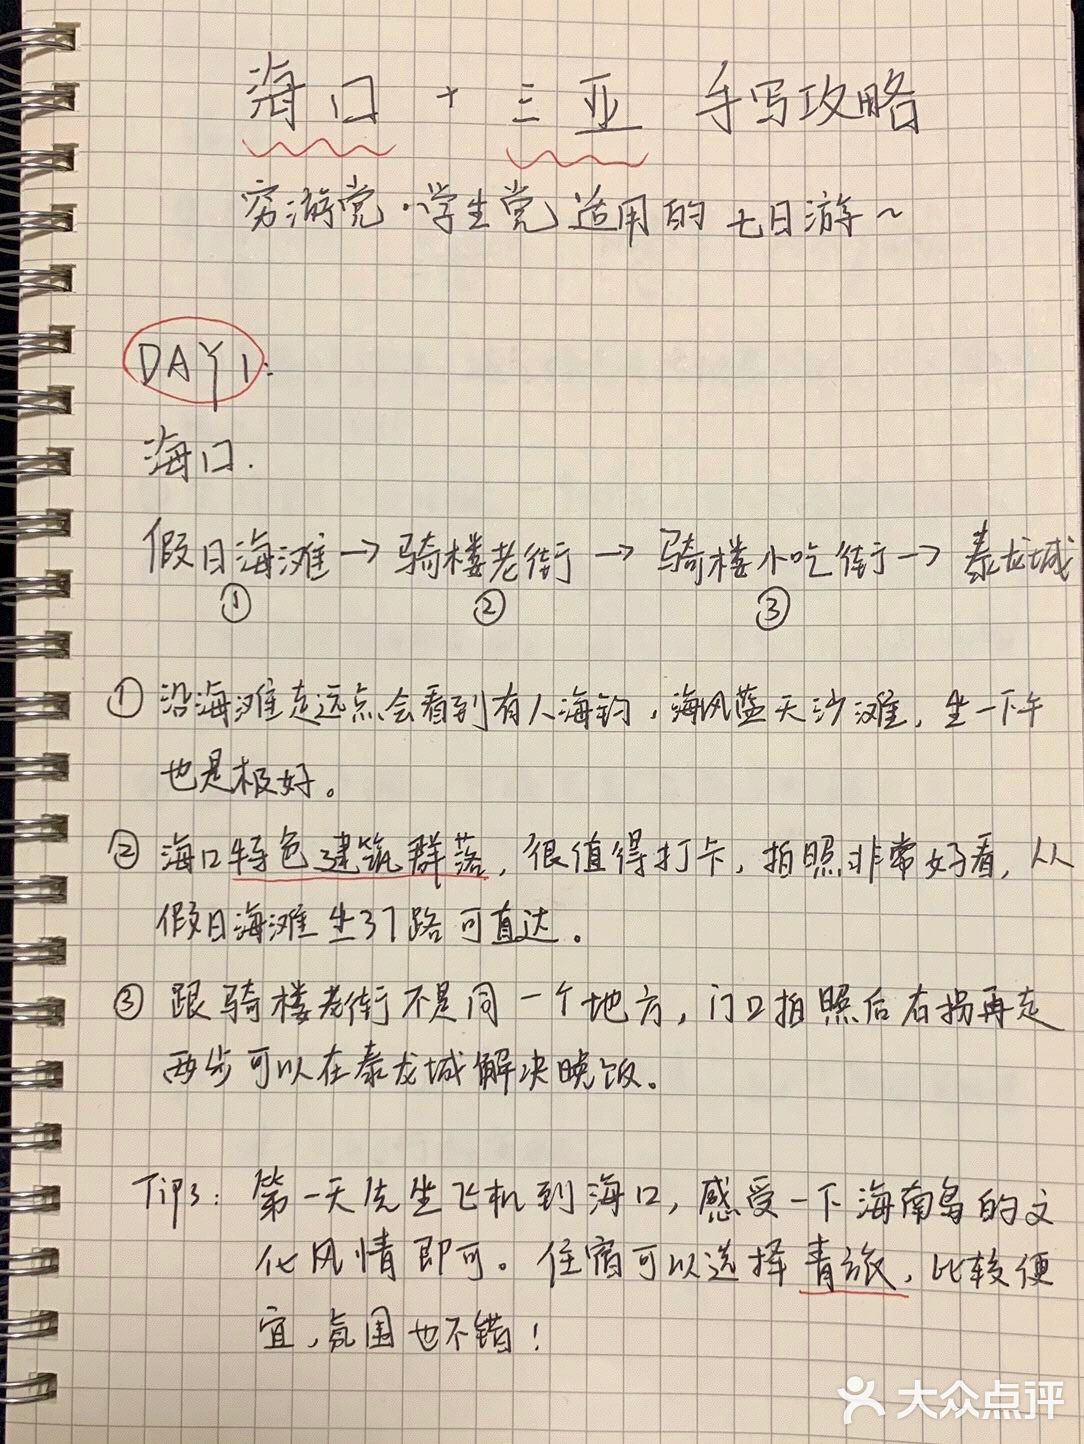 海口 + 三亚 手写攻略
穷游党·学生党适用的七日游~
DAY1:
海口.
假日海滩→骑楼老街→骑楼小吃街→泰龙城
① ② ③
① 沿海滩走远点会看到有人海钓,海风蓝天沙滩,坐一下午
也是极好。
② 海口特色建筑群落,很值得打卡,拍照非常好看,从
假日海滩坐37路可直达。
③ 跟骑楼老街不是同一个地方,门口拍照后右拐再走
两步可以在泰龙城解决晚饭。
Tips: 第一天先坐飞机到海口,感受一下海南岛的文
化风情即可。住宿可以选择青旅,比较便
宜,氛围也不错!
大众点评